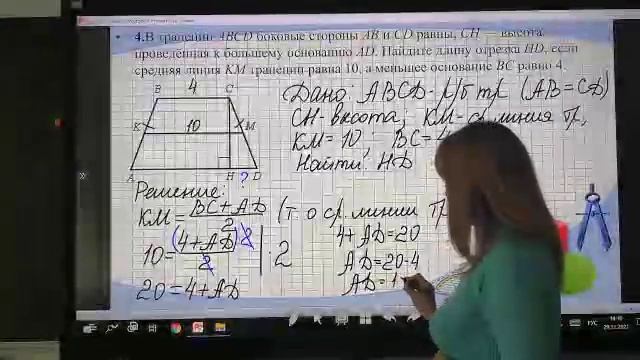 4.В трапеции ABCD боковые стороны AB и CD равны, CH — высота,
проведённая к большему основанию AD. Найдите длину отрезка HD, если
средняя линия KM трапеции равна 10, а меньшее основание BC равно 4.
B 4 C
K 10 M
A H ? D
Дано: ABCD - р/б тр (AB = CD)
CH - высота; KM - ср. линия тр,
KM = 10; BC = 4
Найти: HD
Решение:
KM = BC + AD / 2 (т. о ср. линии тр
10 = (4 + AD) · 2 / 2 | · 2
20 = 4 + AD
4 + AD = 20
AD = 20 - 4
AD = 1
РУС
29.11.2021